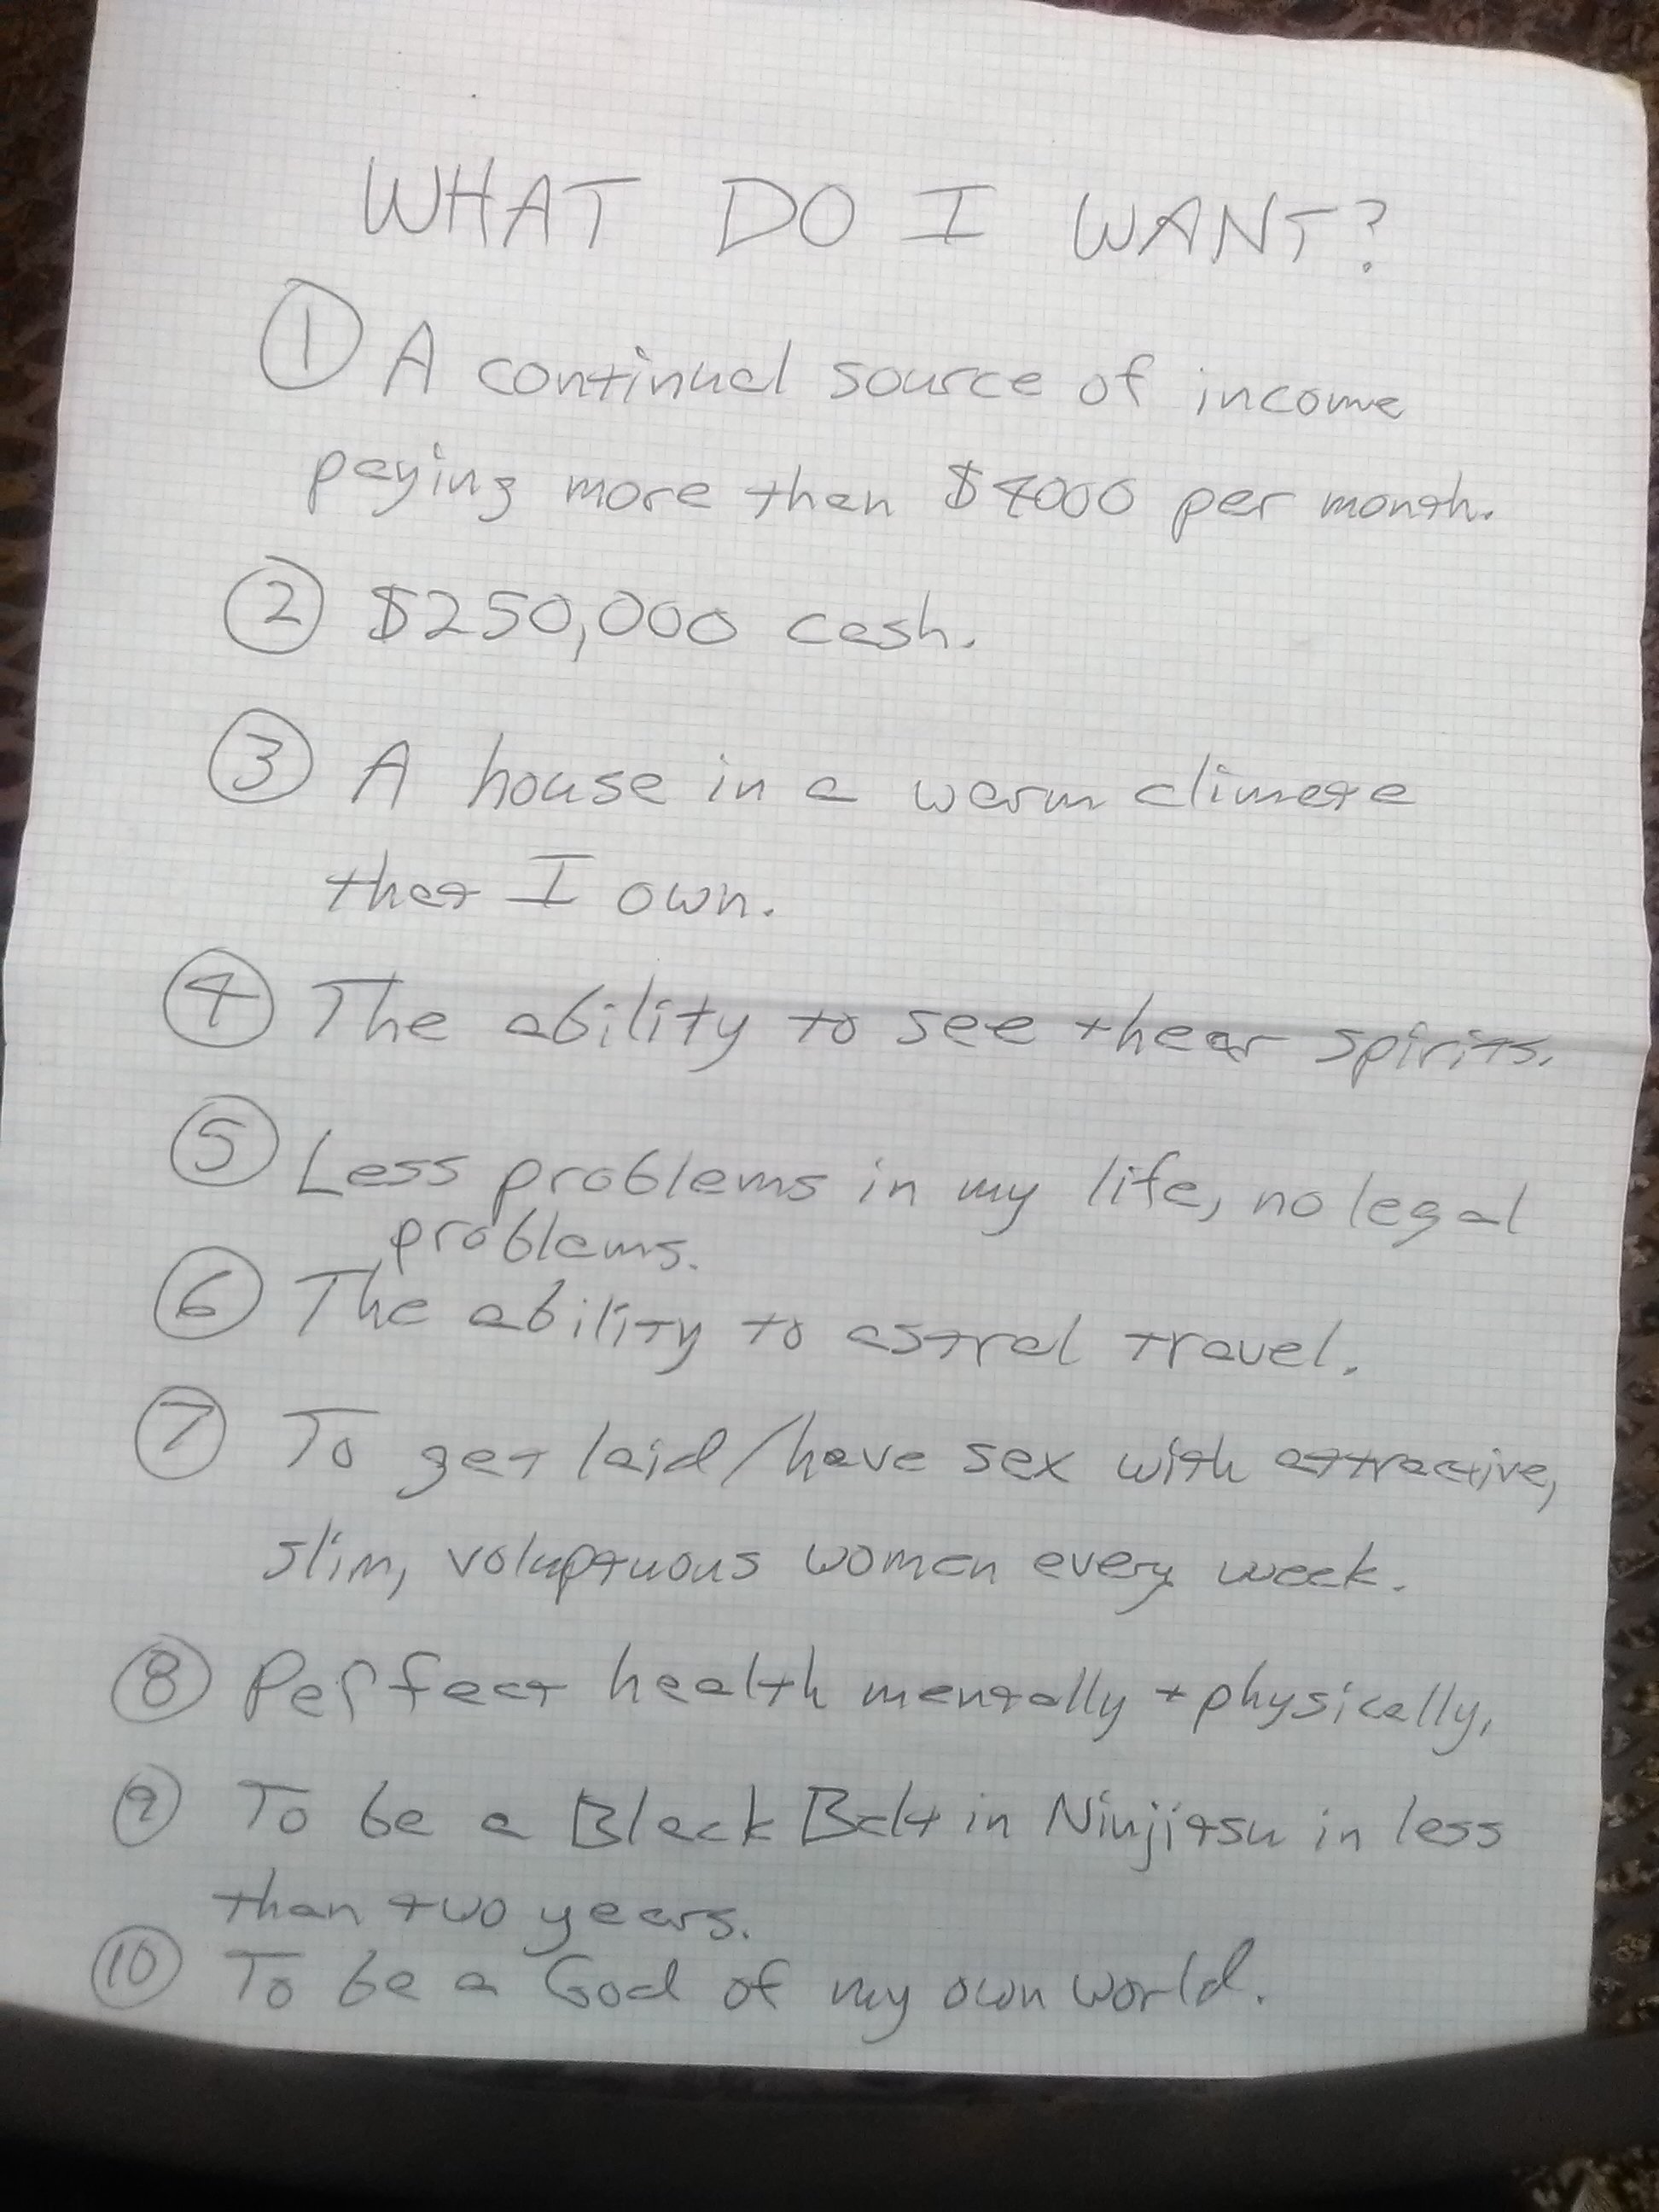 WHAT DO I WANT?
① A continual source of income
paying more than $4000 per month.
② $250,000 cash.
③ A house in a warm climate
that I own.
④ The ability to see + hear spirits.
⑤ Less problems in my life, no legal
problems.
⑥ The ability to astral travel.
⑦ To get laid/have sex with attractive,
slim, voluptuous women every week.
⑧ Perfect health mentally + physically.
⑨ To be a Black Belt in Ninjitsu in less
than two years.
⑩ To be a God of my own world.